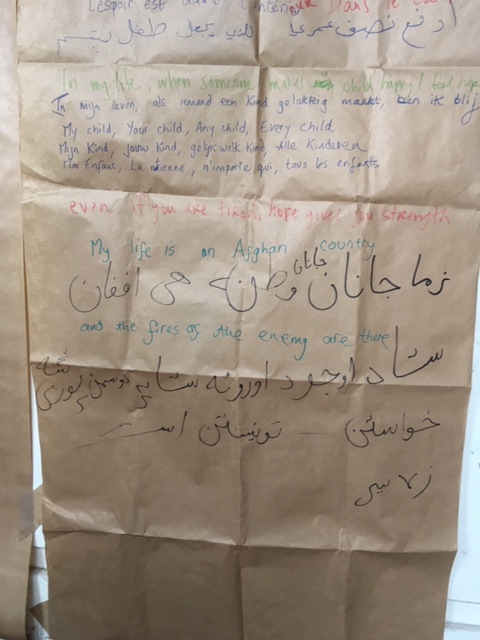 L'espoir est dans Dans le
ادفع نصف عمري للذي يجعل طفل يبتسم
In my life, when someone makes child happy I feel
In mijn leven, als iemand een kind gelukkig maakt, ben ik blij
My child, Your child, Any child, Every child
Mijn Kind, jouw kind, gelijk welk kind, Alle Kinderen
Mon Enfant, La mienne, n'importe qui, tous les enfants
even if you are tired, hope gives you strength
My life is an Afghan country
زما جانان جانان وطن هی افغان
and the fires of the enemy are there
ستا د اوجود اورونه ستا په دوسمن پوری
خواستن تونیستن است